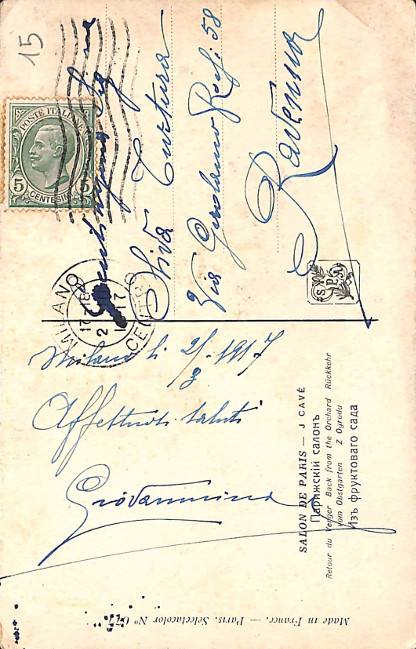 15
POSTE ITALIANE
5 CENTESIMI 5
Gentilissima Sig.na
Via Gerolamo Rossi 58
Ravenna
MILANO
17
2 17
S.P.A.
Milano li 2/9 1917
Affettuosi saluti
Giovannina
SALON DE PARIS — J CAVÉ
Парижскій салонъ
Retour du Verger Back from the Orchard Rückkehr
vom Obstgarten Z Ogrodu
Изъ фруктоваго сада
Made in France. — Paris. Selectacolor No